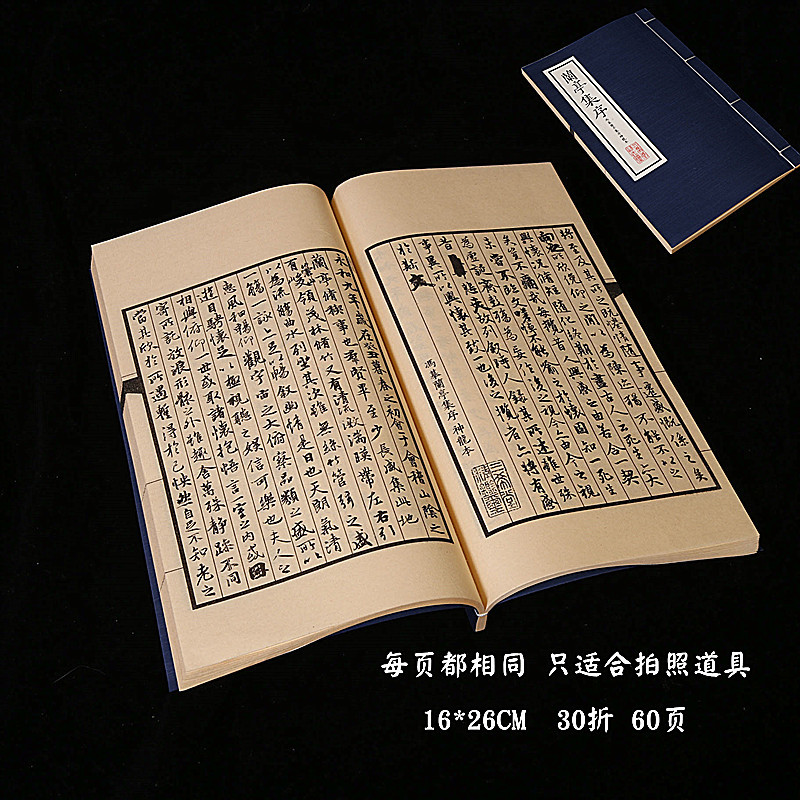 蘭亭集序
將至及其所之既惓情隨事遷感慨係之矣
向之所欣俛仰之閒以為陳迹猶不能不以之
興懷況脩短隨化終期於盡古人云死生亦大
矣豈不痛哉每攬昔人興感之由若合一契
未嘗不臨文嗟悼不能喻之於懷固知一死生
為虛誕齊彭殤為妄作後之視今亦由今之視
昔悲夫故列敘時人錄其所述雖世殊
事異所以興懷其致一也後之攬者亦將有感
於斯文
馮摹蘭亭集序 神龍本
永和九年歲在癸丑暮春之初會于會稽山陰之
蘭亭脩稧事也羣賢畢至少長咸集此地
有峻領茂林脩竹又有清流激湍暎帶左右引
以為流觴曲水列坐其次雖無絲竹管弦之盛
一觴一詠亦足以暢敘幽情是日也天朗氣清
惠風和暢仰觀宇宙之大俯察品類之盛所以
遊目騁懷足以極視聽之娛信可樂也夫人之
相與俯仰一世或取諸懷抱悟言一室之內或因
寄所託放浪形骸之外雖趣舍萬殊靜躁不同
當其欣於所遇暫得於己快然自足不知老之
每页都相同 只适合拍照道具
16*26CM 30折 60页